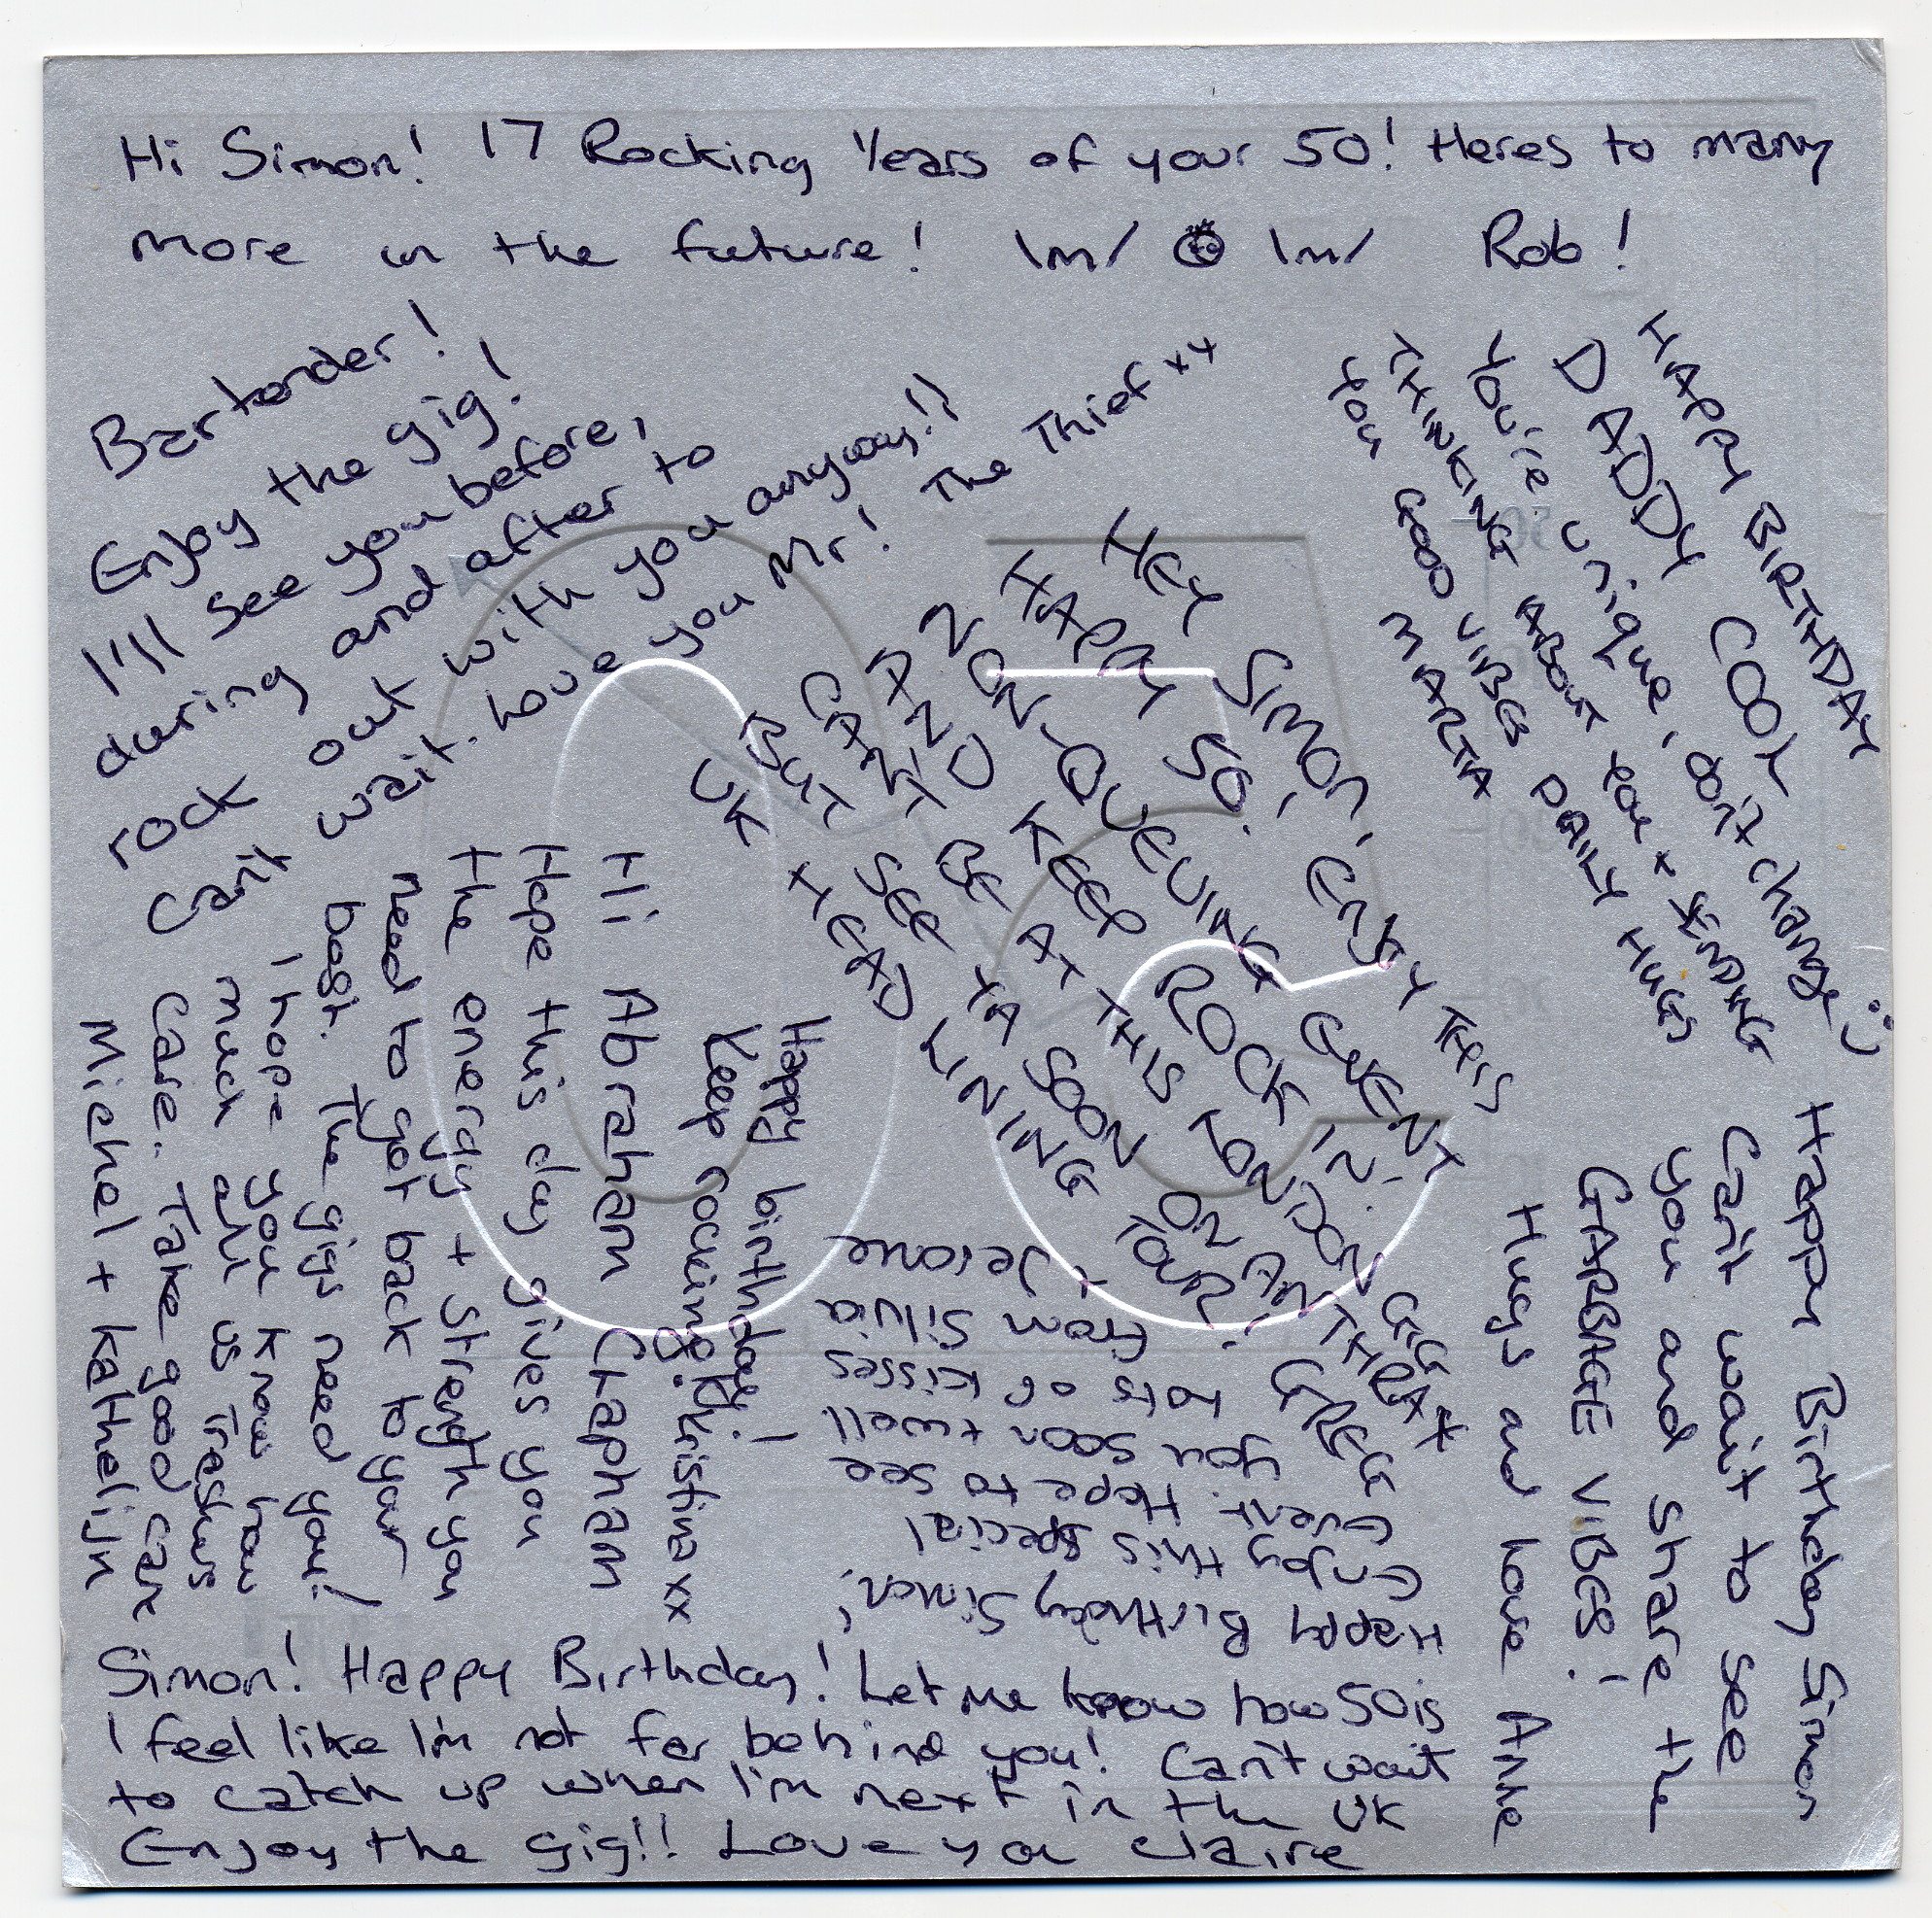 Hi Simon! 17 Rocking Years of your 50! Heres to many
more in the future! \m/ \m/ Rob!
Bartender!
Enjoy the gig!
I'll see you before,
during and after to
rock out with you anyway!!
Can't wait. Love you Mr! The Thief xx
HAPPY BIRTHDAY
DADDY COOL
You're unique, don't change :)
THINKING ABOUT you + SENDING
You GOOD VIBES DAILY HUGS
MARTA
HEY SIMON, ENJOY THIS
HAPPY 50.
NON-QUEUING EVENT
AND KEEP ROCK IN!
CAN'T BE AT THIS LONDON GIG
BUT SEE YA SOON ON ANTHRAX
UK HEADLINING TOUR! GREG
Happy Birthday Simon
Can't wait to see
you and share the
GARBAGE VIBES!
Hugs and love Anke
Happy birthday!
Keep rocking! Kristina xx
Hi Abraham Chapham
Hope this day gives you
the energy + strength you
need to get back to your
best. The gigs need you!
I hope you know how
much all us Treshus
care. Take good care
Michel + Kathelijn
Happy Birthday Simon,
Enjoy this special
Event. Hope to see
you soon twoll
Lots of kisses
from Silvia
+ Jerome
Simon! Happy Birthday! Let me know how 50 is
I feel like I'm not far behind you! Can't wait
to catch up when I'm next in the UK
Enjoy the gig!! Love you Claire